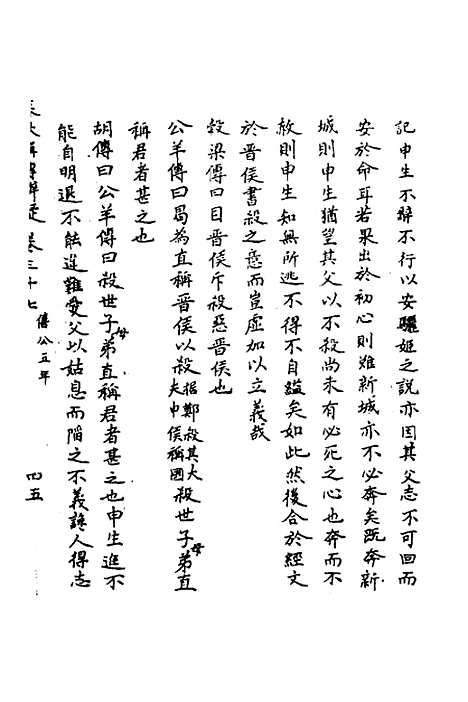 記申生不辭不行以安驪姬之說亦因其父志不可回而
安於命耳若果出於初心則雖新城亦不必奔矣既奔新
城則申生猶望其父以不殺尚未有必死之心也奔而不
赦則申生知無所逃不得不自縊矣如此然後合於經文
於晉侯書殺之意而豈虛加以立義哉
穀梁傳曰目晉侯斥殺惡晉侯也
公羊傳曰曷為直稱晉侯以殺據鄭殺其大夫申侯稱國殺世子母弟直
稱君者甚之也
胡傳曰公羊傳曰殺世子母弟直稱君者甚之也申生進不
能自明退不能違難愛父以姑息而陷之不義讒人得志
卷三十七 僖公五年 四五